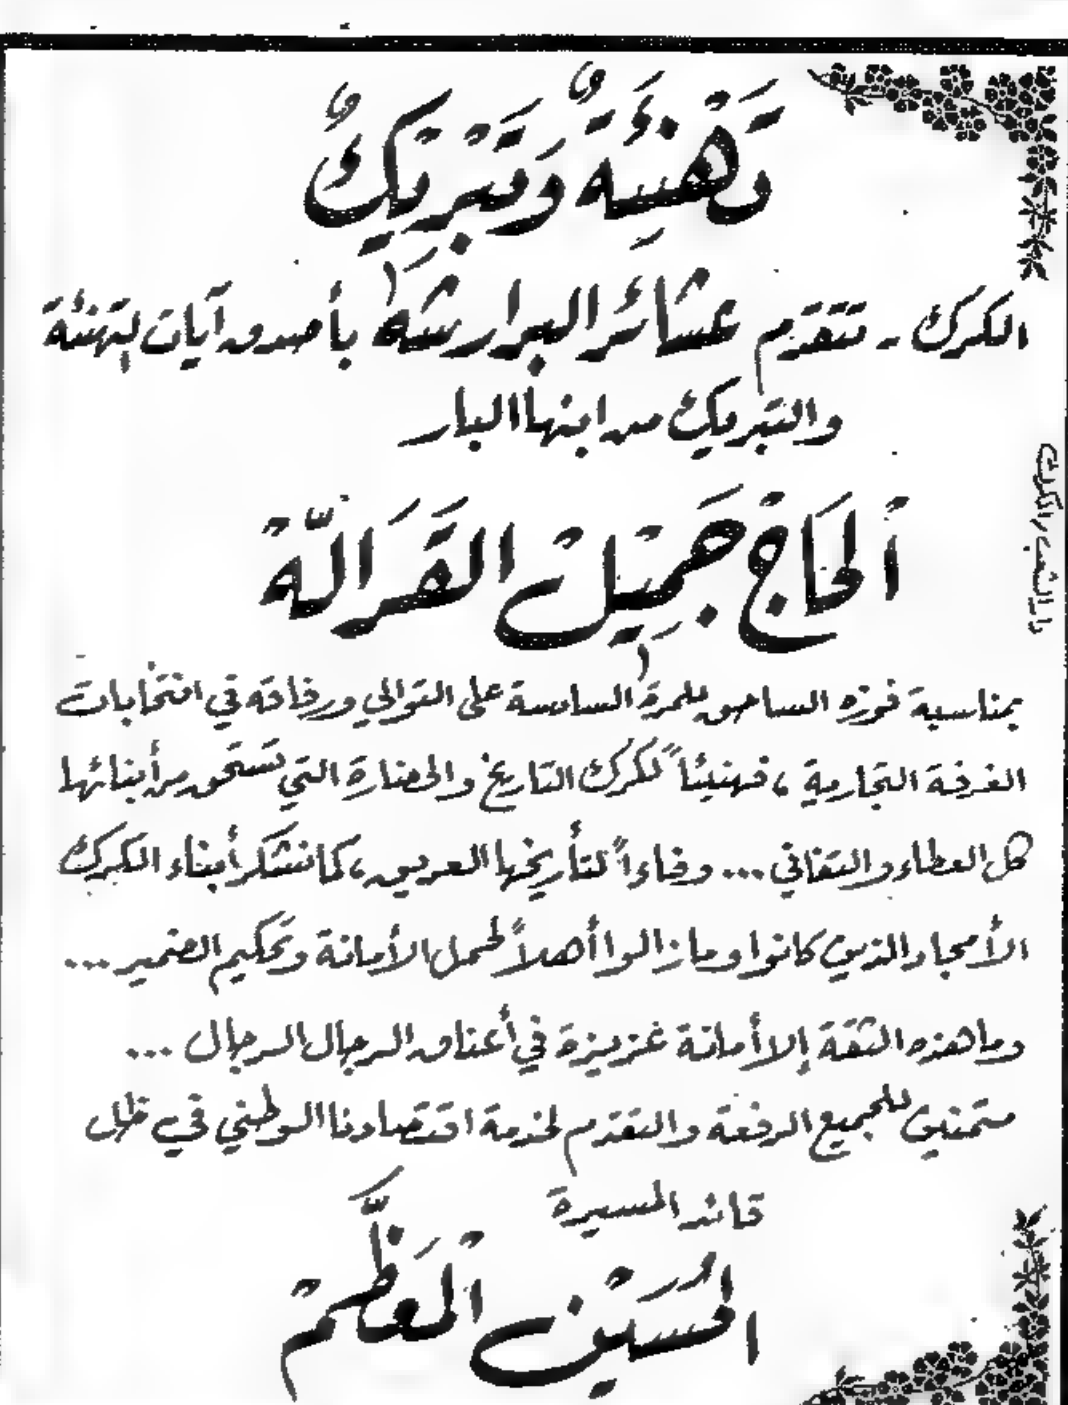 تَهْنِئَةٌ وَتَبْرِيْكٌ
الكرك - تتقدم عشائر البرارشه بأصدق آيات التهنئة
والتبريك من ابنها البار
ألحَاجْ جَمِيْل القَرَالّةْ
بمناسبة فوزه الساحق للمرة السادسة على التوالي ورفاقه في انتخابات
الغرفة التجارية ، فهنيئاً لكرك التاريخ والحضارة التي تستحق من أبنائها
كل العطاء والتفاني ... وفاءاً لتأريخها العريق ، كما نشكر أبناء الكرك
الأمجاد الذين كانوا وما زالوا أهلاً لحمل الأمانة وتحكيم الضمير ...
وما هذه الثقة إلا أمانة عزيزة في أعناق الرجال الرجال ...
متمنين للجميع الرفعة والتقدم لخدمة اقتصادنا الوطني في ظل
قائد المسيرة
الحُسَيْن المْعَظَّمْ